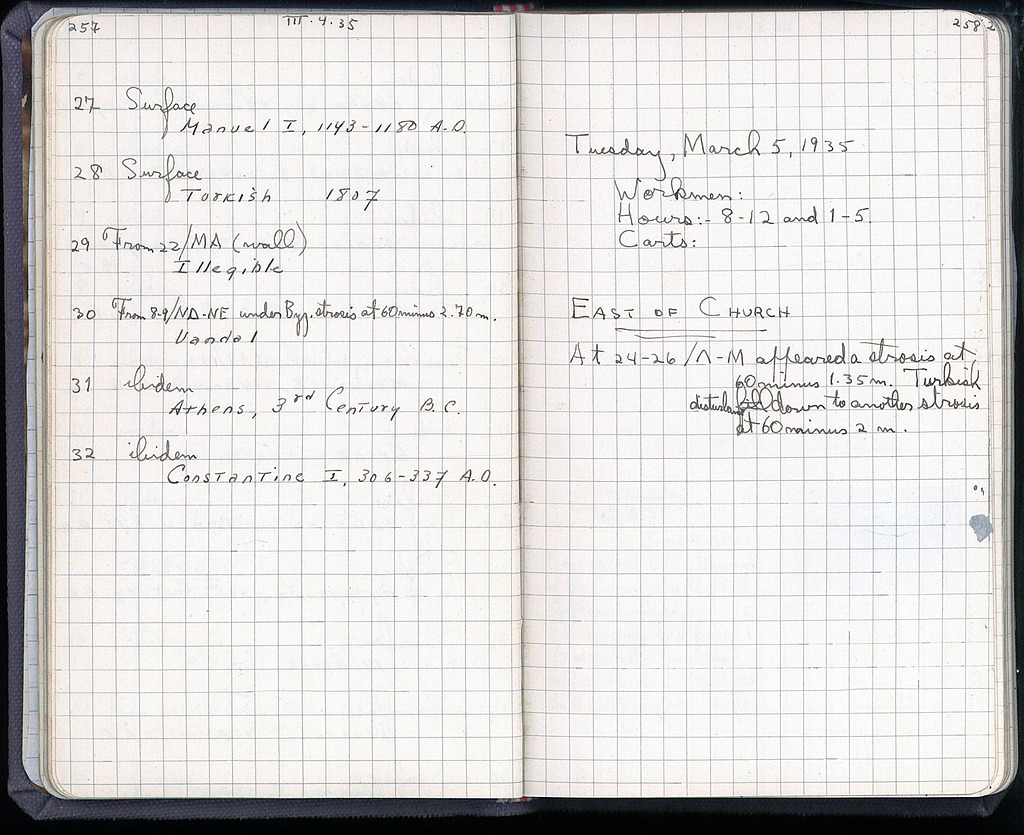 257
III.4.35
27 Surface
Manuel I, 1143-1180 A.D.
28 Surface
Turkish 1807
29 From 22/MA (wall)
Illegible
30 From 8-9/ND-NE under Byz. strosis at 60 minus 2.70 m.
Vandal
31 ibidem
Athens, 3rd Century B.C.
32 ibidem
Constantine I, 306-337 A.D.
258
Tuesday, March 5, 1935
Workmen:
Hours:- 8-12 and 1-5.
Carts:
EAST OF CHURCH
At 24-26/Λ-M appeared a strosis at
60 minus 1.35 m. Turkish
down to another strosis
at 60 minus 2 m.